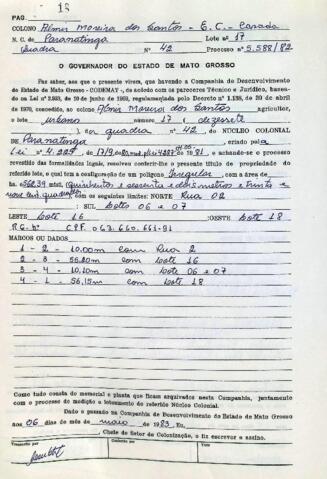 PAG. 18
COLONO Almir Moreira dos Santos - E.C. - Casado
N. C. de Paranatinga Lote nº 17
Quadra Nº 42 Processo nº 5.588/82
O GOVERNADOR DO ESTADO DE MATO GROSSO
Faz saber, aos que o presente virem, que havendo a Companhia de Desenvolvimento
do Estado de Mato Grosso - CODEMAT -, de acordo com os pareceres Técnico e Jurídico, basea-
do na Lei nº
concedido, ao colono Almir Moreira dos Santos agricultor,
o lote urbano número 17 (dezesete
), em quadra nº 42, do NÚCLEO COLONIAL
de Paranatinga, criado pela
Lei 4.225 de e achando-se o processo
revestido das formalidades legais, resolveu conferir-lhe o presente título de propriedade do
referido lote, o qual tem a configuração de um polígono Irregular, com a área de
com os seguintes limites: NORTE Rua 02
: SUL lotes 06 e 07
LESTE lote 16 :OESTE lote 18
R.G. nº CPF. 063.660.661-91
MARCOS OU DADOS
1 - 2 - 10,00m com Rua 2
2 - 3 - com lote 16
3 - 4 - 10,10m com lote 06 e 07
4 - 1 - 56,15m com lote 18
Como tudo consta do memorial e planta que ficam arquivados nesta Companhia, juntamente
com o processo de medição e loteamento do referido Núcleo Colonial.
Dado e passado na Companhia de Desenvolvimento do Estado de Mato Grosso
aos 06 dias do mês de maio de 1983, Eu,
Chefe do Setor de Colonização, o fiz escrever e assino.